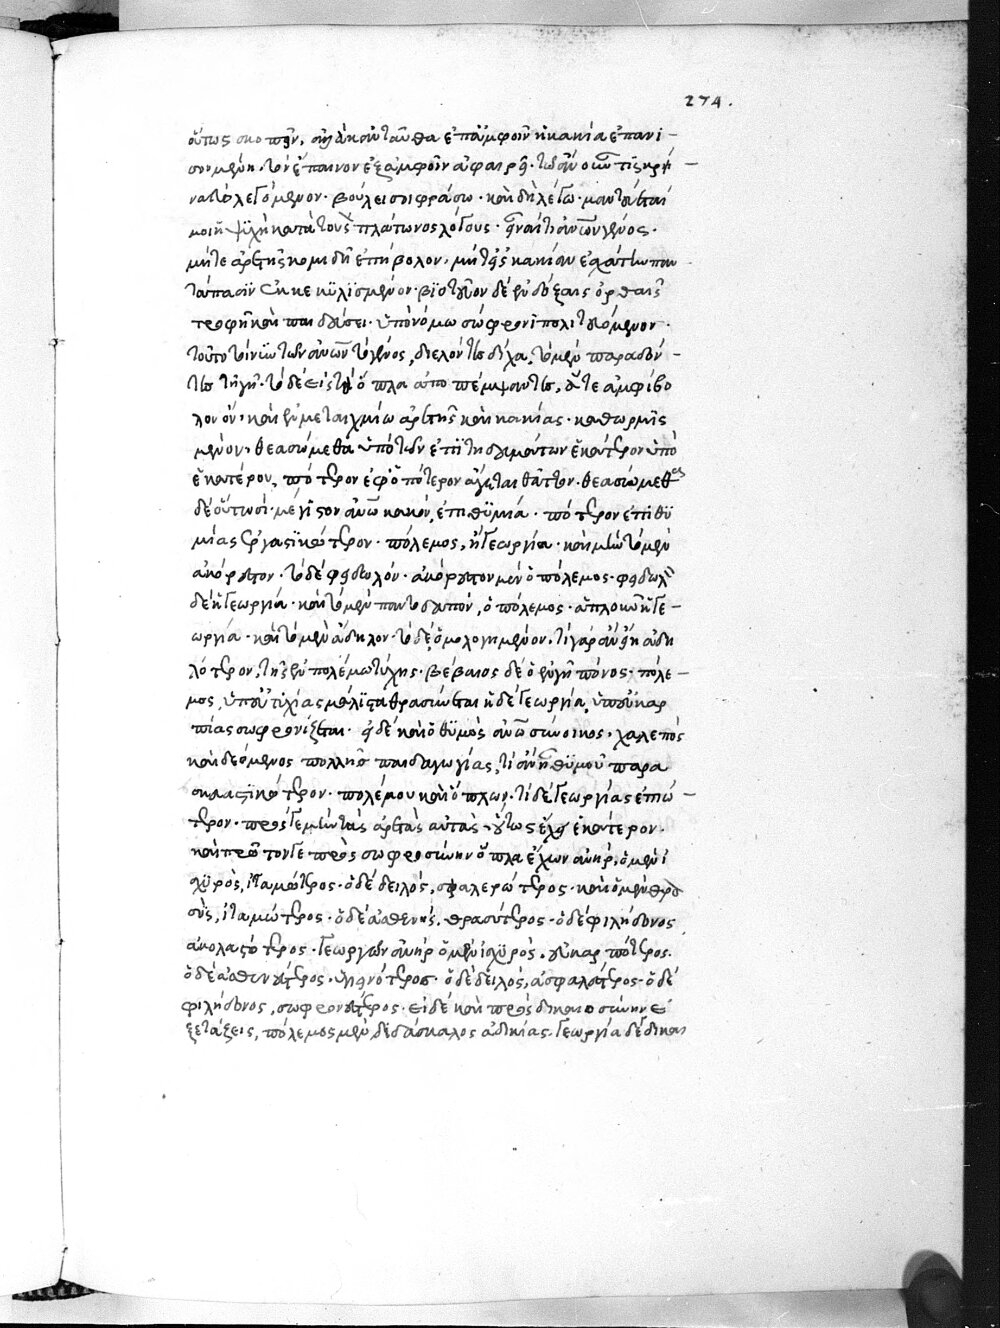 274.
οὕτως σκοπεῖν, οὐδὲν ἐνταῦθα ἐπ' ἀμφοῖν ἡ κακία ἐπανι-
σουμένη, τὸν ἔπαινον ἐξ ἀμφοῖν ἀφαιρεῖ.
να τὸ λεγόμενον. βούλει σοι φράσω. καὶ δὴ λέγω. μαντεύεται
μοι ἡ ψυχὴ κατὰ τοὺς πλάτωνος λόγους. εἶναί τι ἀνθρώπων γένος.
μήτε ἀρετῆς κομιδῇ ἐπήβολον, μήτε εἰς κακίαν ἐσχάτην παν
τάπασιν ἐκκεκυλισμένον. βιοτεῦον δὲ ἐν δόξαις ὀρθαῖς
τροφῇ καὶ παιδεύσει. ὑπὸ νόμῳ σώφρονι πολιτευόμενον.
τοῦτο τοίνυν τῶν ἀνθρώπων τὸ γένος, διελόντες δίχα, τὸ μὲν παραδόν-
τες τῇ γῇ. τὸ δὲ εἰς τὰ ὅπλα ἀποπέμψαντες, ἅτε ἀμφίβο
λον ὄν, καὶ ἐν μεταιχμίῳ ἀρετῆς καὶ κακίας. καθωρμισ
μένον, θεασώμεθα ὑπὸ τῶν ἐπιτηδευμάτων ἑκάτερον ὑπὸ
ἑκατέρου, πότερον ἐφ' ὁπότερον ἄγεται θᾶττον. θεασώμεθα
δὲ οὑτωσί. μέγιστον ἀνθρώπῳ κακόν, ἐπιθυμία. πότερον ἐπιθυ
μίας ἐργαστικώτερον. πόλεμος, ἢ γεωργία. καὶ μὴν τὸ μὲν
ἀκόρεστον. τὸ δὲ φειδωλόν. ἀκόρεστον μὲν ὁ πόλεμος. φειδωλὸν
δὲ ἡ γεωργία. καὶ τὸ μὲν παντοδαπόν, ὁ πόλεμος. ἁπλοϊκὸν ἡ γε-
ωργία. καὶ τὸ μὲν ἄδηλον. τὸ δὲ, ὁμολογημένον. τί γὰρ ἂν εἴη ἀδη
λότερον, τῆς ἐν πολέμῳ τύχης. βέβαιος δὲ ὁ ἐν γῇ πόνος. πόλε-
μος, ὑπ' εὐτυχίας μάλιστα θρασύνεται ἡ δὲ γεωργία, ὑπ' εὐκαρ
πίας σωφρονίζεται. εἰ δὲ καὶ ὁ θυμὸς ἀνθρώπῳ σύνοικος, χαλεπὸς
καὶ δεόμενος πολλῆς παιδαγωγίας, τί ἂν εἴη θυμοῦ παρα
σκευαστικώτερον. πολέμου καὶ ὅπλων. τί δὲ γεωργίας ἐπιώ-
τερον. πρός γε μὴν τὰς ἀρετὰς αὐτὰς οὕτως ἔχει ἑκάτερον.
καὶ πρῶτον γε πρὸς σωφροσύνην ὅπλα ἔχων ἀνήρ, ὁ μὲν ἰ
σχυρὸς, ἰταμώτερος. ὁ δὲ δειλός, σφαλερώτερος. καὶ ὁ μὲν θρα
σὺς, ἰταμώτερος. ὁ δὲ ἀσθενής, θρασύτερος. ὁ δὲ φιλήδονος
ἀκολαστότερος. γεωργῶν ἀνὴρ ὁ μὲν ἰσχυρός, εὐκαρπότερος.
ὁ δὲ ἀσθενέστερος, ὑγιεινότερος. ὁ δὲ δειλός, ἀσφαλέστερος. ὁ δὲ
φιλήδονος, σωφρονέστερος. εἰ δὲ καὶ πρὸς δικαιοσύνην ἐ
ξετάζεις, πόλεμος μὲν διδάσκαλος ἀδικίας. γεωργία δὲ δικαι